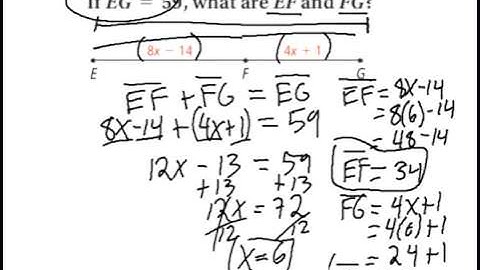 If EG = 59, what are EF and FG?
8x − 14
4x + 1
E
F
G
EF + FG = EG
8x-14 + (4x+1) = 59
12x - 13 = 59
+13 +13
12x = 72
12 12
x = 6
EF = 8x-14
= 8(6)-14
= 48-14
EF = 34
FG = 4x+1
= 4(6)+1
= 24+1